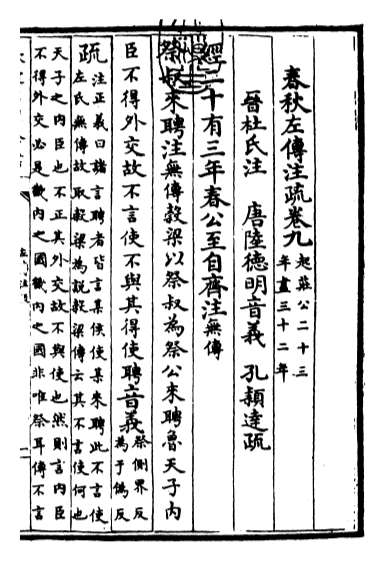 春秋左傳注疏卷九起莊公二十三年盡三十二年
晉杜氏注 唐陸德明音義 孔穎達疏
經二十有三年春公至自齊注無傳
祭叔來聘注無傳穀梁以祭叔為祭公來聘魯天子內
臣不得外交故不言使不與其得使聘音義祭側界反為于偽反
疏注正義曰諸言聘者皆言某侯使某來聘此不言使
左氏無傳故取穀梁為說穀梁傳云其不言使何也
天子之內臣也不正其外交故不與使也然則言內臣
不得外交必是畿內之國畿內之國非唯祭耳傳不言